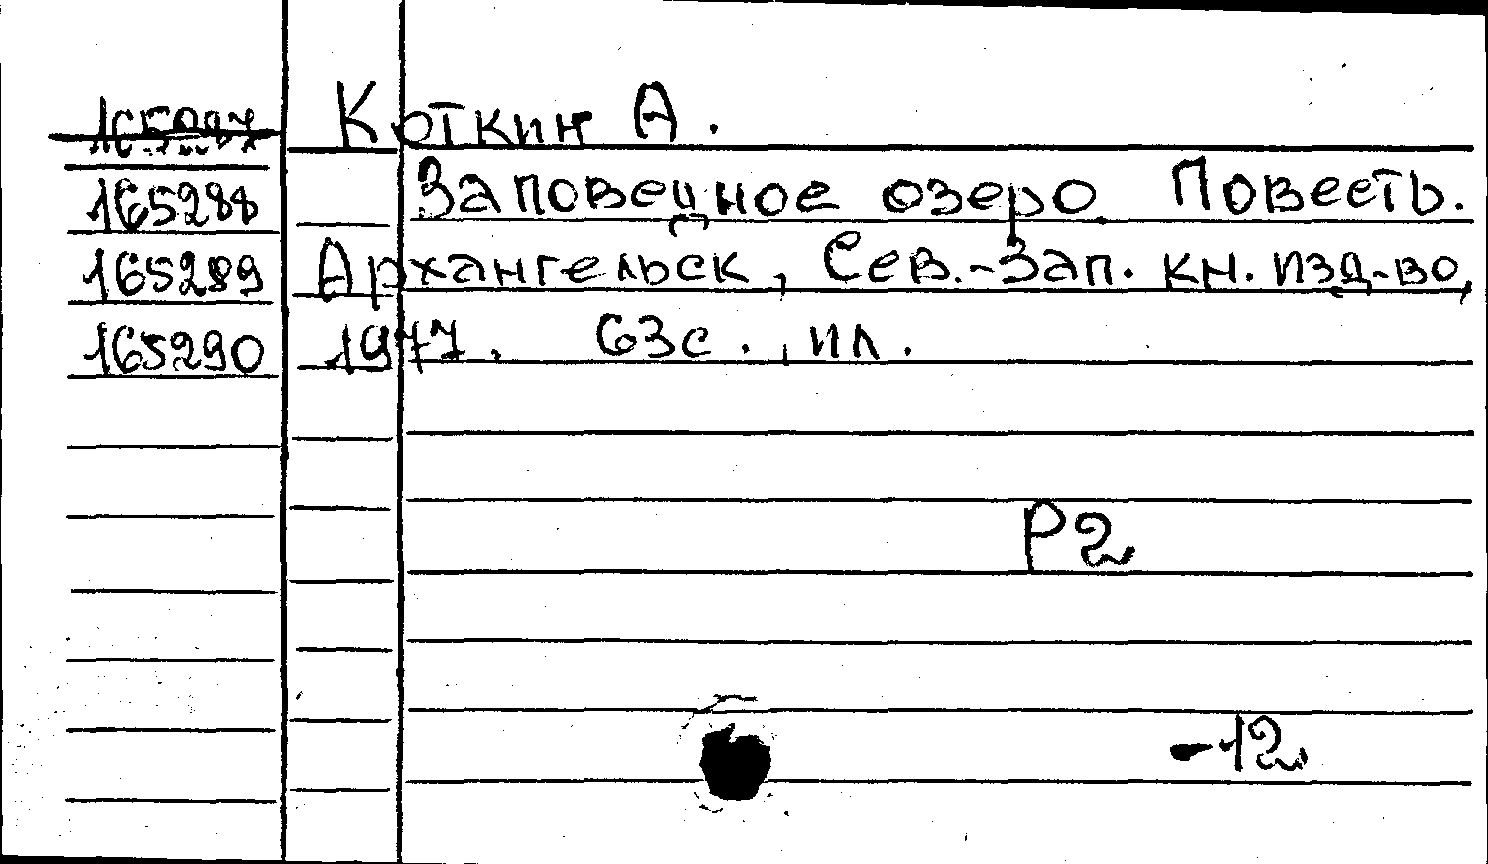 165287 Коткин А.
165288 Заповедное озеро Повесть.
165289 Архангельск, Сев.-Зап. кн. изд-во,
165290 1977. 63с., ил.
Р2
-12